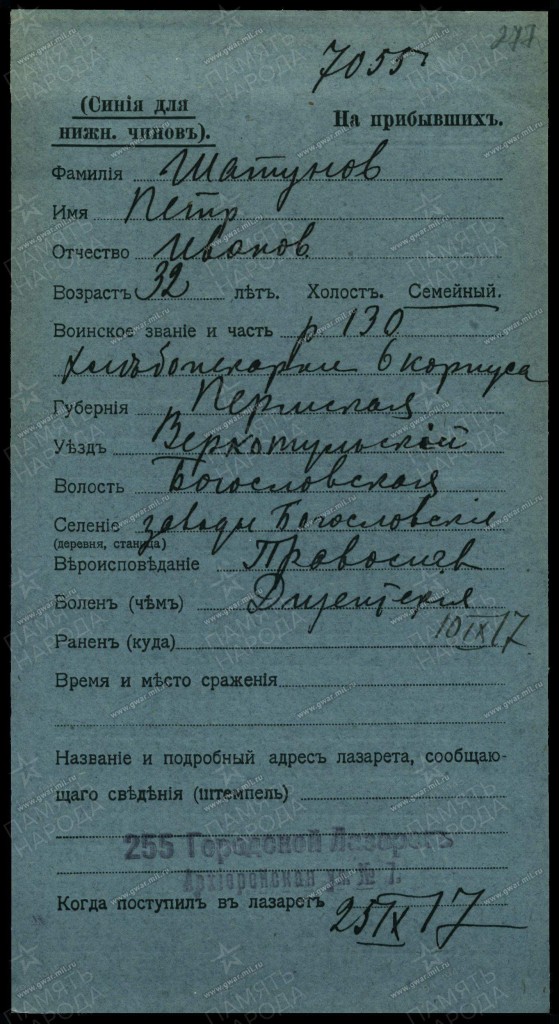 277
7055
(Синія для
нижн. чиновъ).
На прибывшихъ.
Фамилія Шатунов
Имя Петр
Отчество Иванов
Возрастъ 32 лѣтъ. Холостъ. Семейный.
Воинское званіе и часть р 130
хлѣбопекарни 6 корпуса
Губернія Пермская
Уѣздъ Верхотульскій
Волость Богословская
Селеніе заводы Богословскія
(деревня, станица)
Вѣроисповѣданіе Православ
Боленъ (чѣмъ) Дизентерія
10 IX 17
Раненъ (куда)
Время и мѣсто сраженія
Названіе и подробный адресъ лазарета, сообщаю-
щаго свѣдѣнія (штемпель)
255 Городской Лазаретъ
Архіерейская ул № 7.
Когда поступилъ въ лазаретъ 25 IX 17